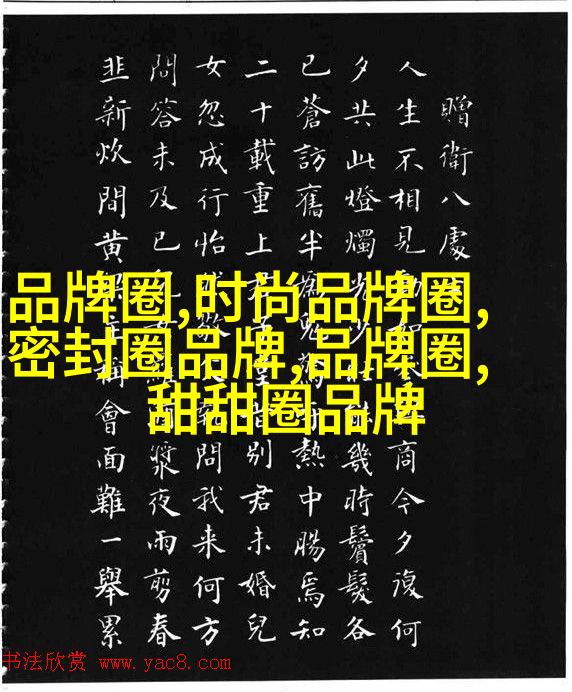 贈衛八處
人生不相見動如參商今夕復何
夕共此燈燭光少壯能幾時鬢髮各
已蒼訪舊半為鬼驚熱中腸焉知
二十載重上君子堂昔別君未婚兒
女忽成行怡敬問我来何方
問答未及已兒女漿夜雨剪春
韭新炊間黃稱會面難一舉累
品牌圈,时尚品牌圈,
密封圈品牌,品牌圈,
甜甜圈品牌
书法欣赏 www.yac8.com